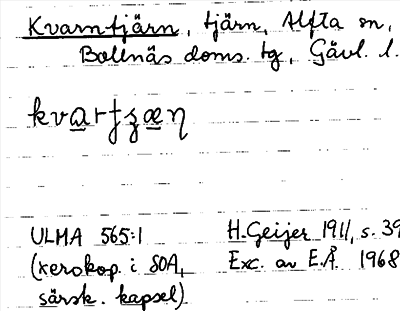 Kvarntjärn, tjärn, Alfta sn,
Bollnäs doms. tg, Gävl. l.
ULMA 565:1
(xerokop. i SOA,
särsk. kapsel)
H. Geijer 1911, s. 39
Exc. av E.Å. 1968